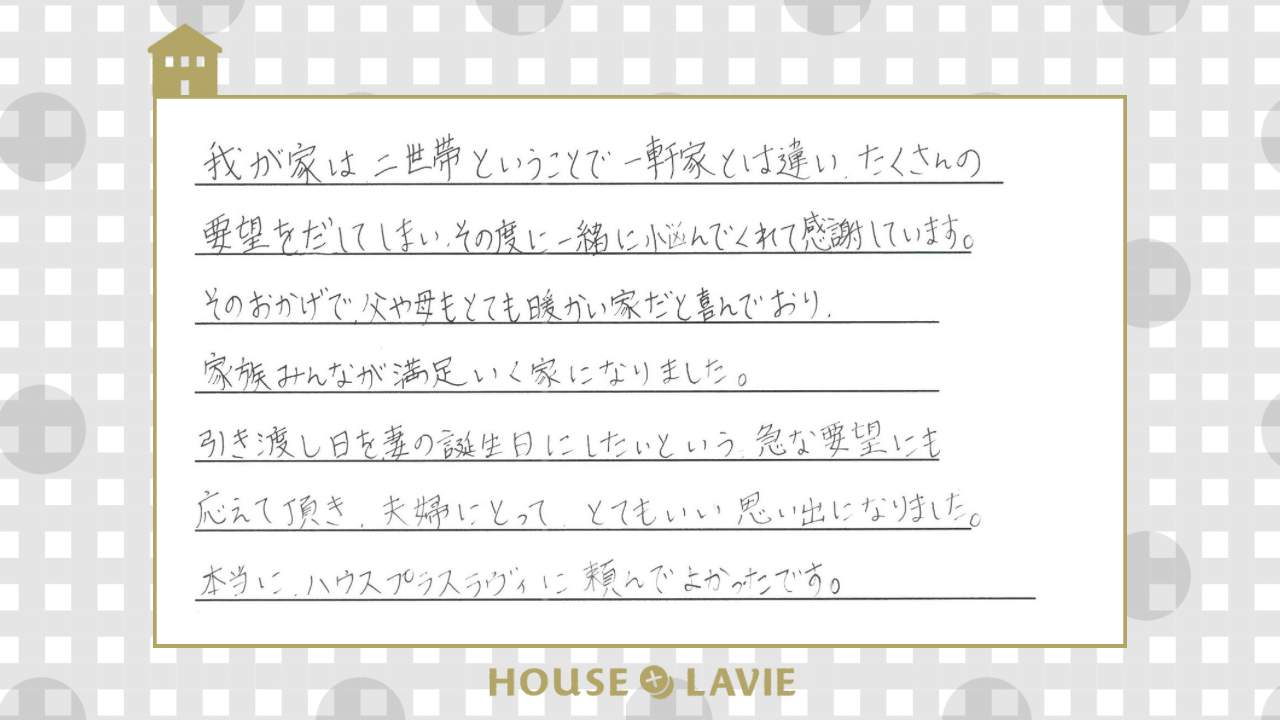 我が家は、二世帯ということで一軒家とは違い、たくさんの
要望をだしてしまい、その度に一緒に悩んでくれて感謝しています。
そのおかげで、父や母もとても暖かい家だと喜んでおり、
家族みんなが満足いく家になりました。
引き渡し日を妻の誕生日にしたいという、急な要望にも
応えて頂き、夫婦にとって、とてもいい思い出になりました。
本当に、ハウスプラスラヴィに頼んでよかったです。
HOUSE + LAVIE